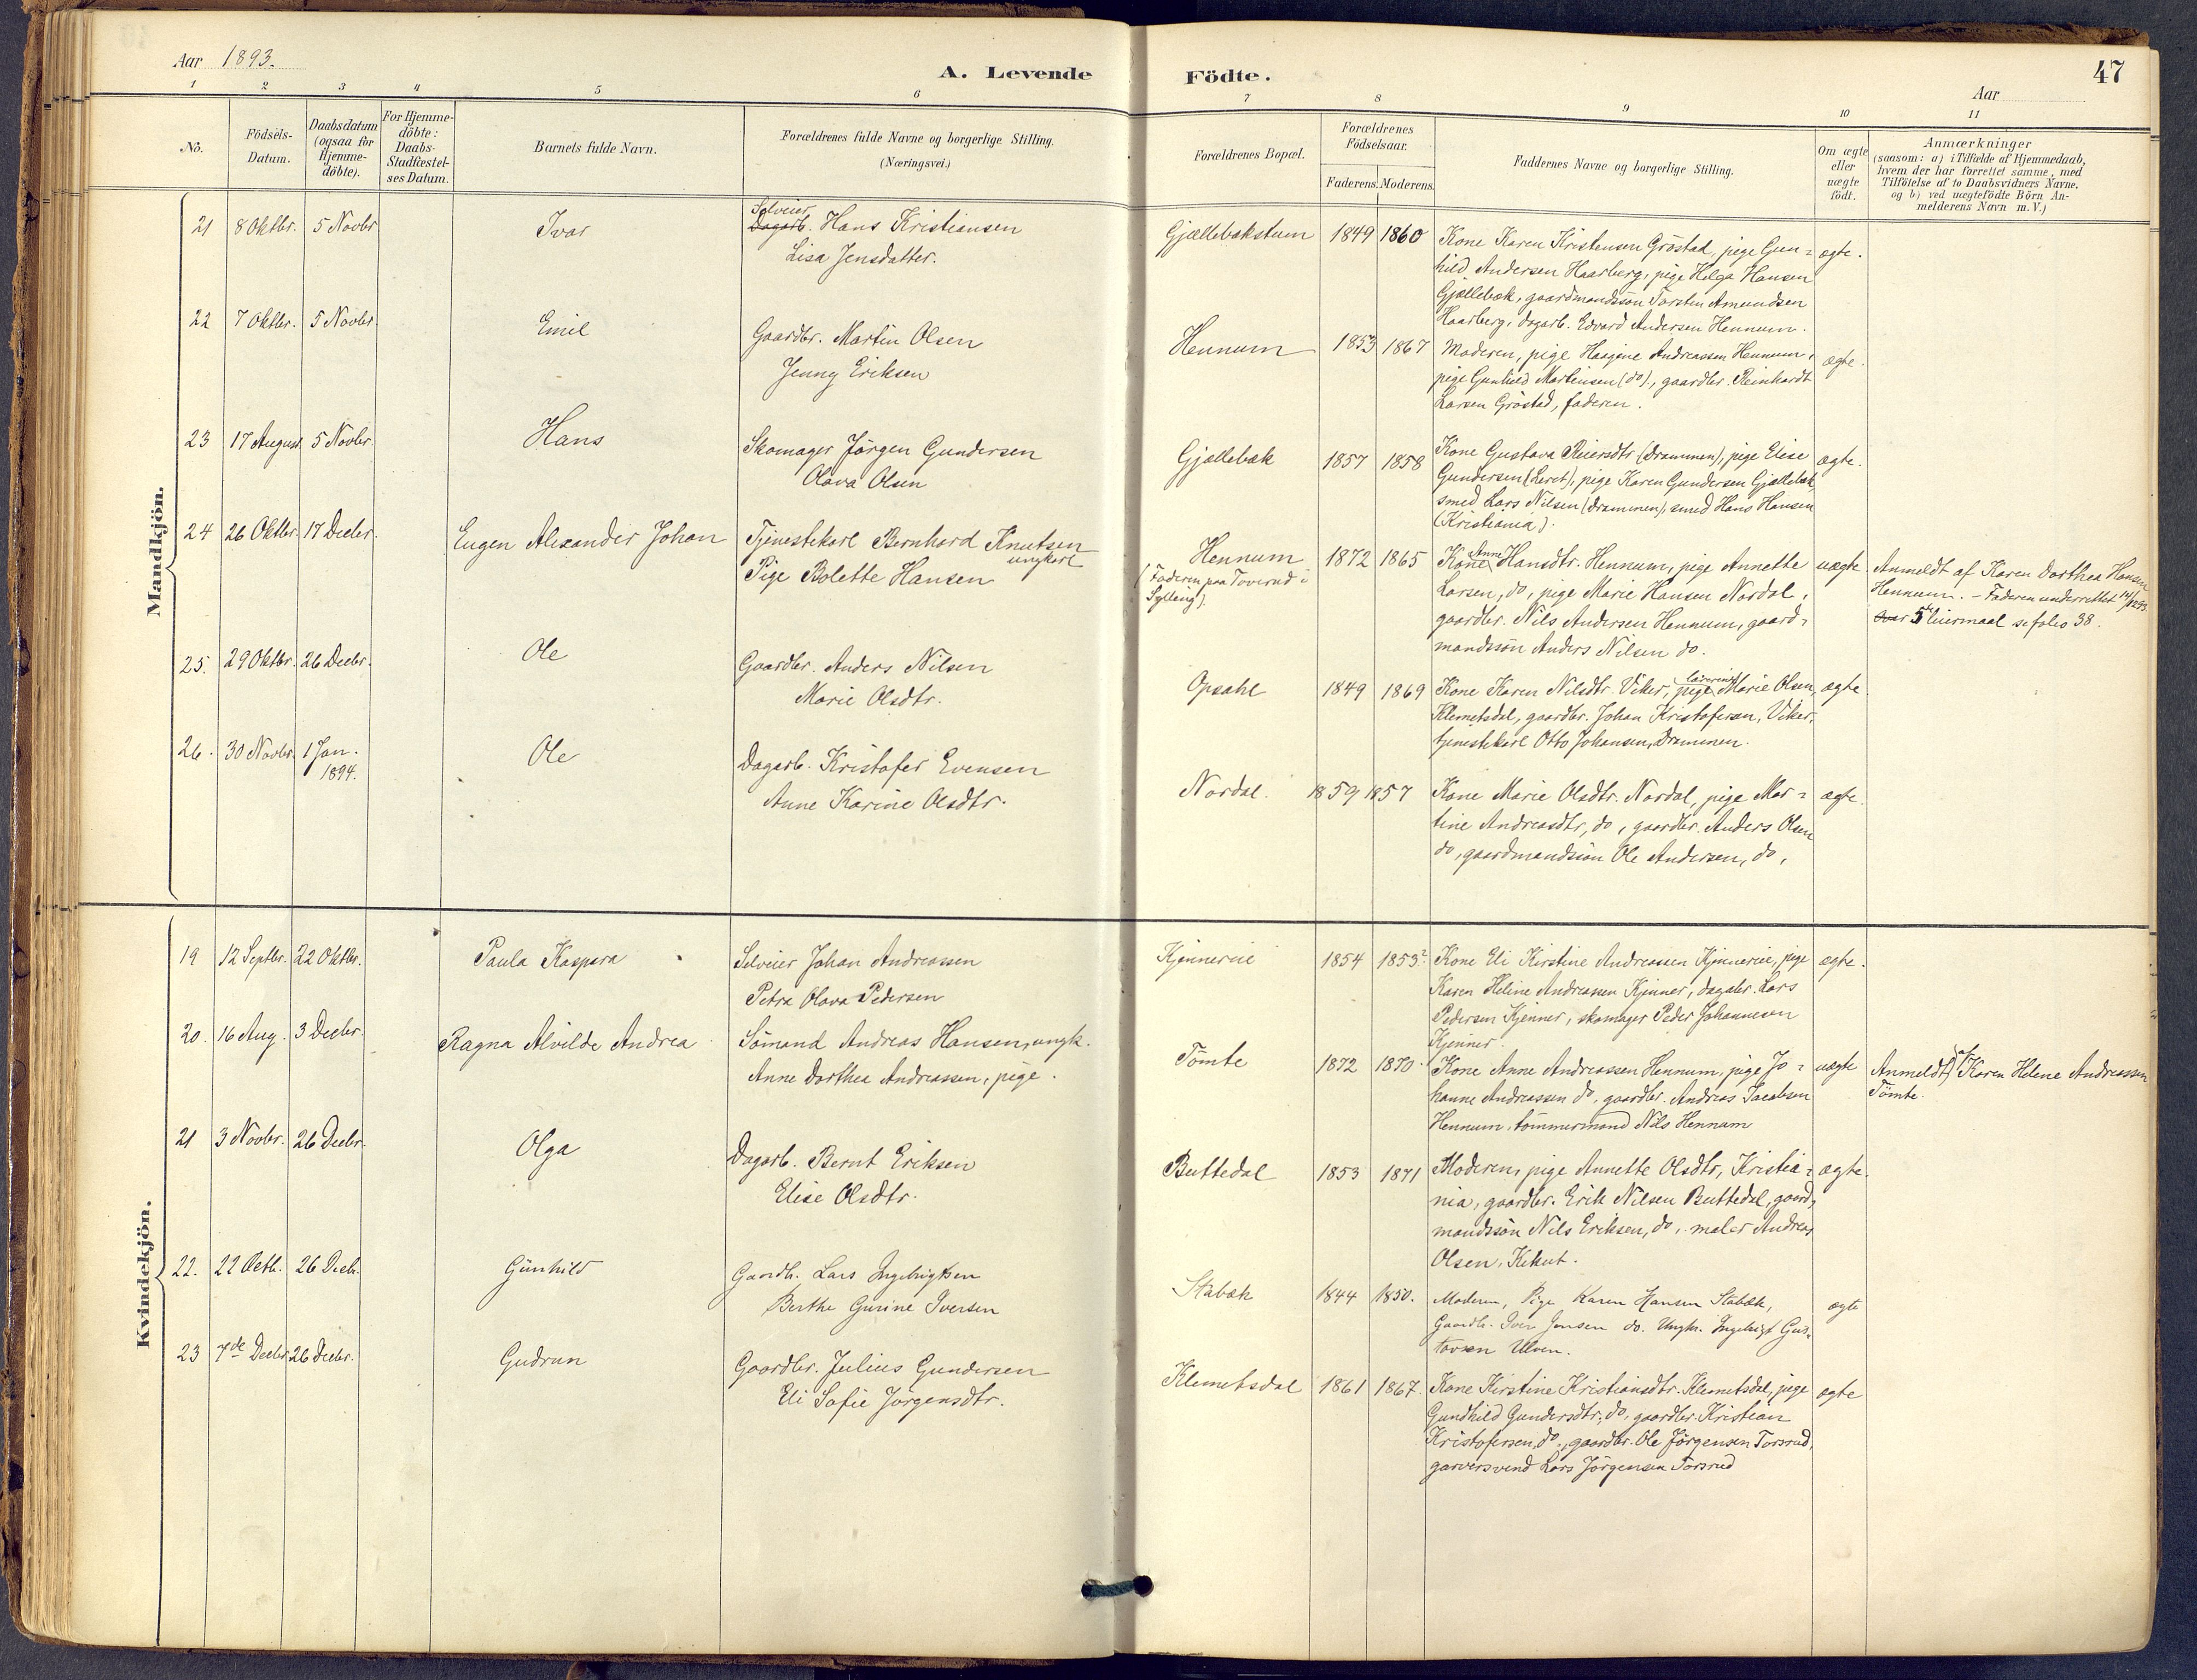 Aar 1893.
A. Levende
Födte.
47
Aar
1 2 3 4 5 6 7 8 9 10 11
No.
Födsels-
Datum.
Daabsdatum
(ogsaa for
Hjemme-
döbte).
For Hjemme-
döbte:
Daabs-
Stadfæstel-
ses Datum.
Barnets fulde Navn.
Forældrenes fulde Navne og borgerlige Stilling.
(Næringsvei.)
Forældrenes Bopæl.
Forældrenes
Födselsaar.
Faderens. Moderens.
Faddernes Navne og borgerlige Stilling.
Om ægte
eller
uægte
födt.
Anmærkninger
(saasom: a) i Tilfælde af Hjemmedaab,
hvem der har forrettet samme, med
Tilföielse af to Daabsvidners Navne.
og b) ved uægtefödte Börn An-
melderens Navn m. V.)
Mandkjön.
21 8 Oktbr. 5 Novbr Ivar
Selveier
Dagarb. Hans Kristiansen
Lisa Jensdatter.
Gjællebækstum 1849 1860
Kone Karen Kristensen Gröstad, pige Gun-
hild Andersen Haarberg, pige Helga Hansen
Gjællebæk, gaardmandssön Torsten Amundsen
Haarberg, dagarb. Edvard Andersen Hennum.
ægte.
22 7 Oktbr. 5 Novbr Emil
Gaardbr. Martin Olsen
Jenny Eriksen
Hennum 1853 1867
Moderen, pige Haagine Andreassen Hennum,
pige Gunhild Martinsen (do), gaardbr. Reinhardt
Larsen Gröstad, faderen.
ægte.
23 17 August 5 Novbr. Hans
Skomager Jörgen Gundersen
Olava Olsen
Gjællebæk 1857 1858
Kone Gustava Reiersdtr (Drammen), pige Elise
Gundersen (Leret), pige Karen Gundersen Gjællebæk,
smed Lars Nilsen (Drammen), smed Hans Hansen
(Kristiania).
ægte.
24 26 Oktbr. 17 Decbr. Eugen Alexander Johan
Tjenestekarl Bernhard Knutsen
ungkarl
Pige Bolette Hansen
Hennum
(Faderen paa Toverud i
Sylling).
1872 1865
Kone Anne Hansdtr. Hennum, pige Annette
Larsen, do, pige Marie Hansen Nordal,
gaardbr. Nils Andersen Hennum, gaard-
mandssön Anders Nilsen do.
uægte
Anmeldt af Karen Dorthea Hansen
Hennum. – Faderen underrettet 14/12 93.
5te leiermaal se folio 38.
25. 29 Oktbr. 26 Decbr. Ole
Gaardbr. Anders Nilsen
Marie Olsdtr.
Opsahl 1849 1869
Kone Karen Nilsdtr. Viker, pige lærerinde Marie Olsen,
Klemetsdal, gaardbr. Johan Kristofersen, Viker,
tjenestekarl Otto Johansen, Drammen.
ægte
26. 30 Novbr. 1 Jan.
1894.
Ole
Dagarb. Kristofer Evensen
Anne Karine Olsdtr.
Nordal. 1859 1857
Kone Marie Olsdtr. Nordal, pige Mar-
tine Andreasdtr, do, gaardbr. Anders Olsen
do, gaardmandssön Ole Andersen, do,
ægte.
Kvindekjön.
19 12 Septbr. 22 Oktbr. Paula Kaspara
Selveier Johan Andreassen
Petra Olava Pedersen
Kjinnereie 1854 1853?
Kone Eli Kirstine Andreassen Kjinnereie, pige
Karen Heline Andreassen Kjinner, dagabr. Lars
Pedersen Kjenner, skomager Peder Johannesen
Kjenner.
ægte.
20. 16 Aug. 3 Decbr. Ragna Alvilde Andrea
Sömand Andreas Hansen, ungk.
Anne Dorthea Andreassen, pige.
Tömte 1872 1870.
Kone Anne Andreassen Hennum, pige Jo-
hanne Andreassen do, gaardbr. Andreas Jacobsen
Hennum, tömmermand Nils Hennum
uægte
Anmeldt af Karen Helene Andreassen
Tömte.
21 3 Novbr. 26 Decbr. Olga
Dagarb. Bernt Eriksen
Elise Olsdtr.
Buttedal 1853 1871
Moderen, pige Annette Olsdtr, Kristia-
nia, gaardbr. Erik Nilsen Buttedal, gaard-
mandssön Nils Eriksen, do, maler Andreas
Olsen, Kekut.
ægte.
22. 22 Octb. 26 Decb. Günhild
Gaardb. Lars Ingebrigtsen
Berthe Gurine Iversen
Stabæk 1844 1850.
Moderen, Pige Karen Hansen Stabæk,
Gaardb. Iver Jensen do. Ungk. Ingebrigt Gus-
tavsen Ulven.
ægte
23 7de Decbr. 26 Decbr. Gudrun
Gaardbr. Julius Gundersen
Eli Sofie Jörgensdtr.
Klemetsdal 1861 1867.
Kone Kirstine Kristiansdtr. Klemetsdal, pige
Gundhild Gundersdtr, do, gaardbr. Kristian
Kristofersen, do, gaardbr. Ole Jörgensen Torsrud,
garversvend Lars Jörgensen Torsrud
ægte